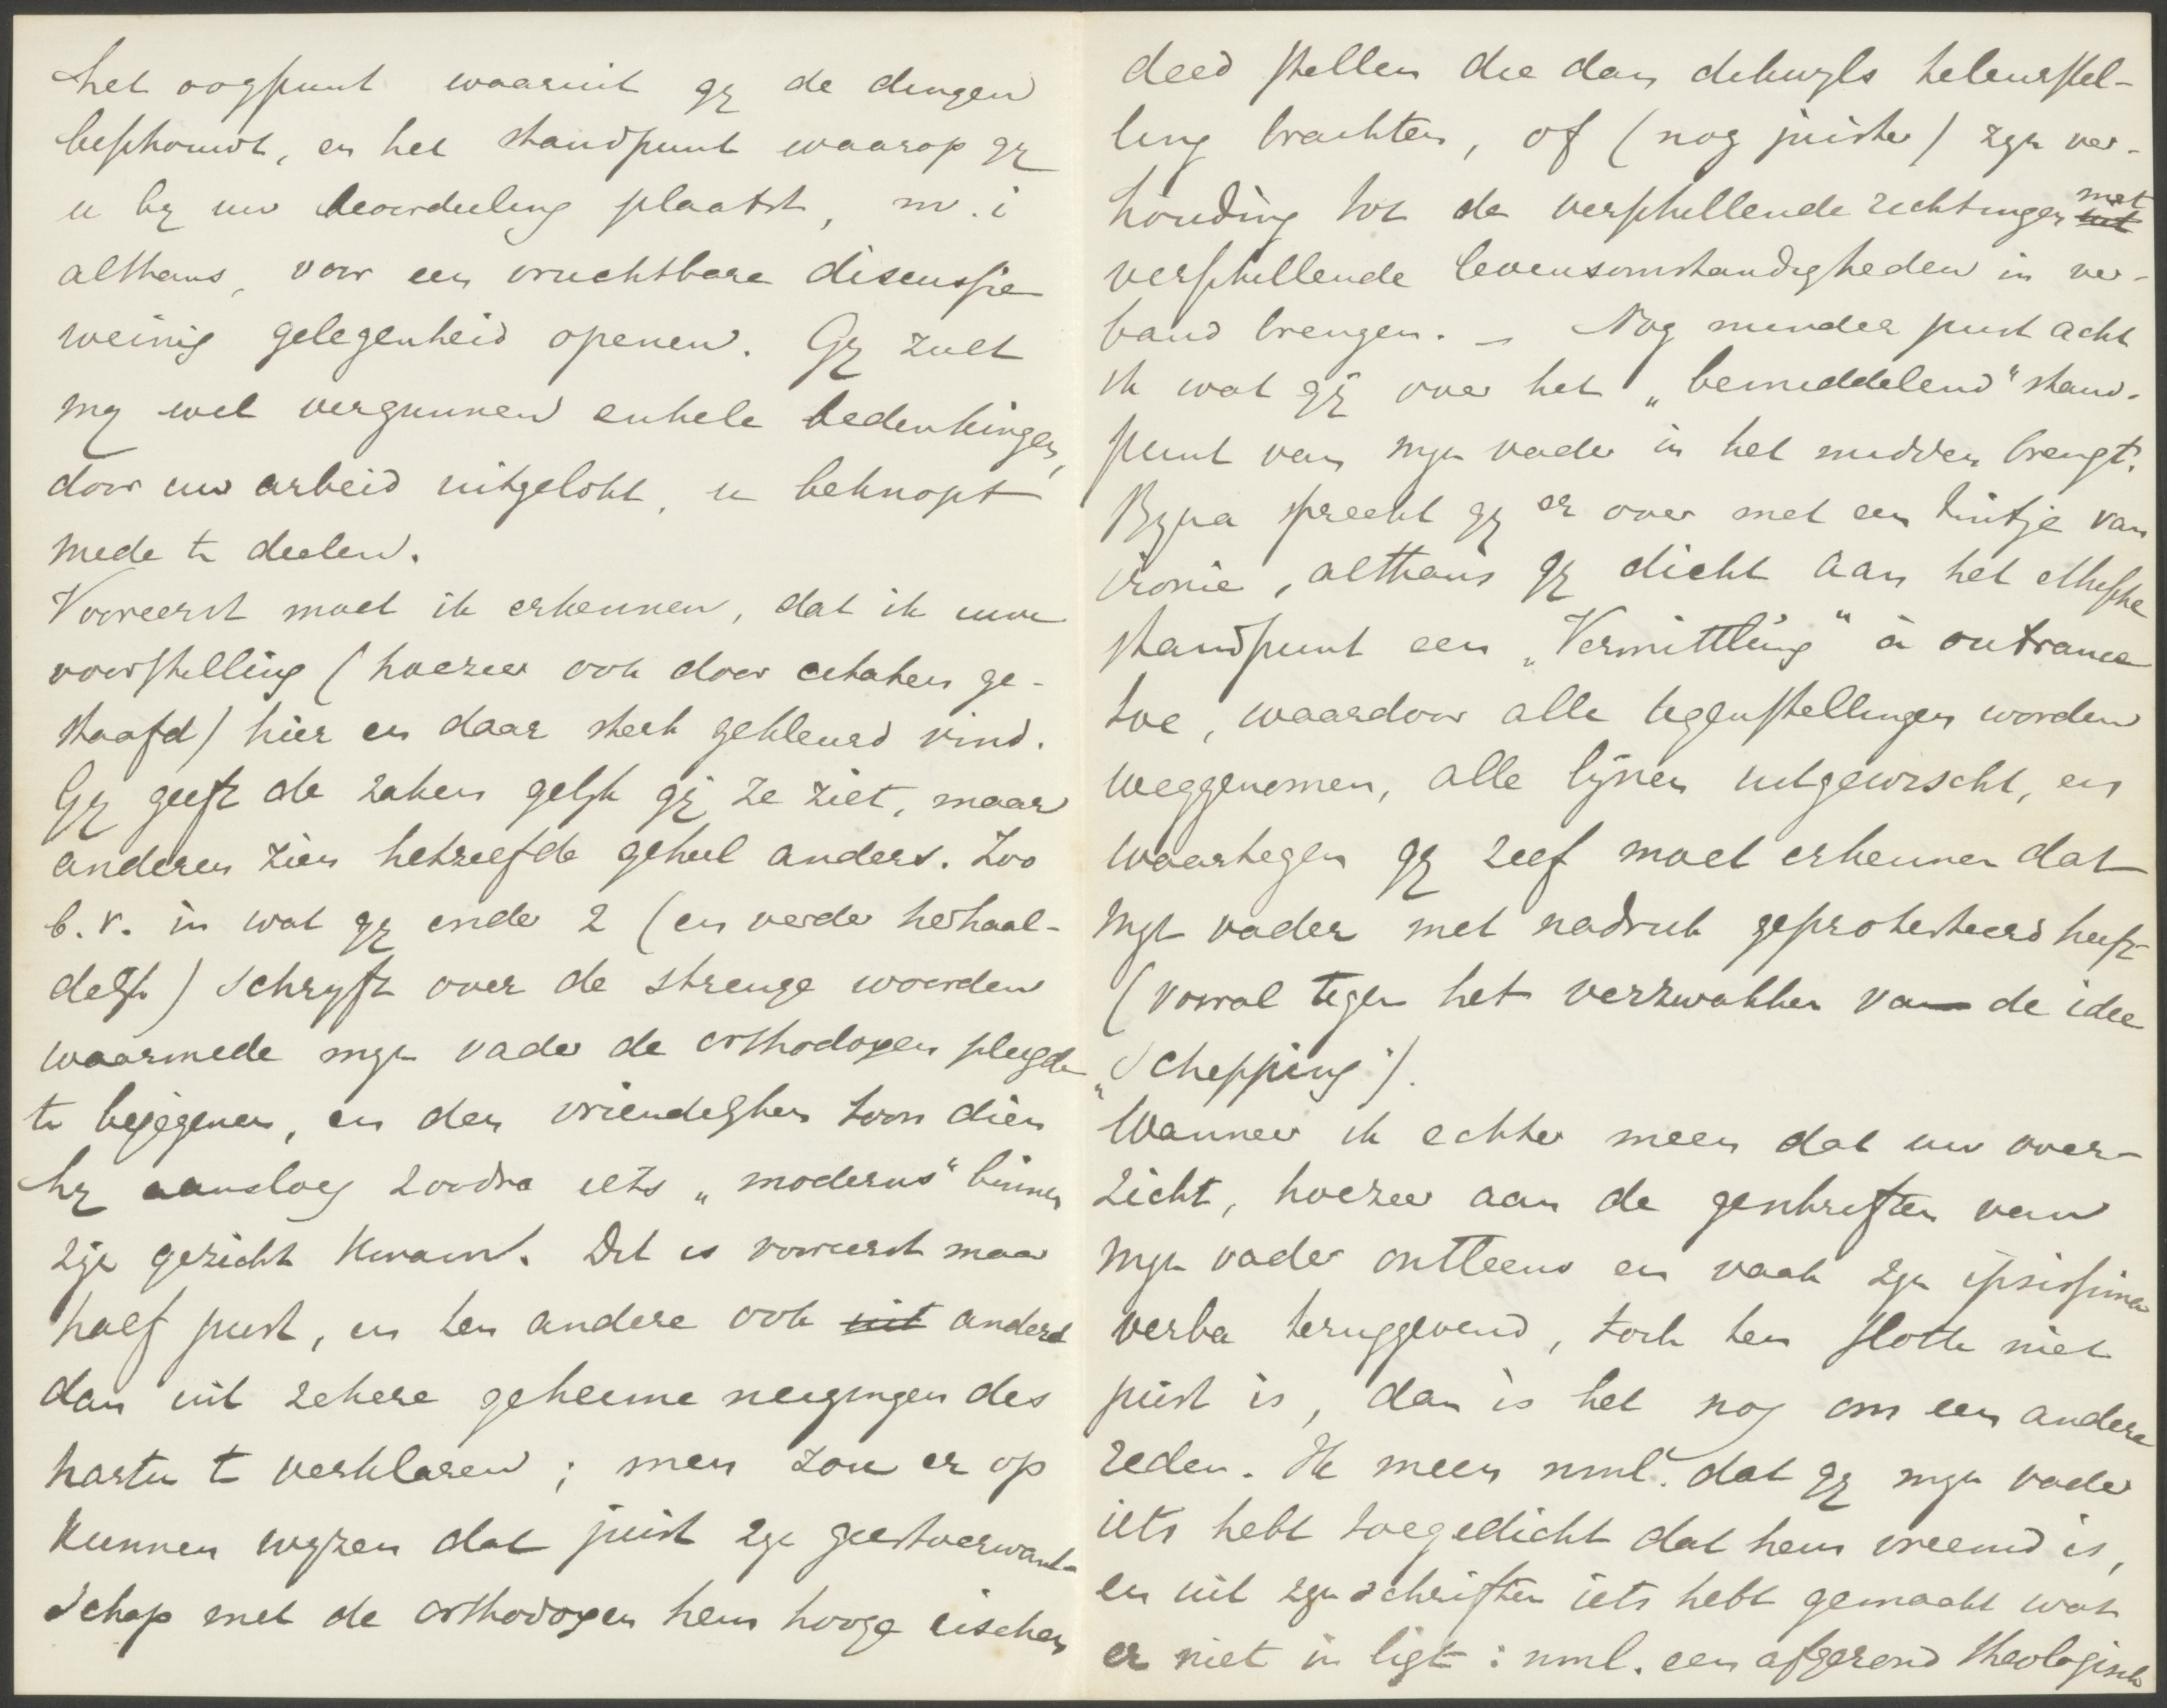 het oogpunt waaruit gij de dingen
beschouwt, en het standpunt waarop gij
u bij uw beoordeeling plaatst, m.i
althans, voor een vruchtbare discussie
weinig gelegenheid openen. Gij zult
mij wel vergunnen enkele bedenkingen,
door uw arbeid uitgelokt, u beknopt
mede te deelen.
Vooreerst moet ik erkennen, dat ik uwe
voorstelling (hoezeer ook door citaten ge-
staafd) hier en daar sterk gekleurd vind.
Gij geeft de zaken gelijk gij ze ziet, maar
anderen zien hetzelfde geheel anders. Zoo
b.v. in wat gij onder 2 (en verder herhaal-
delijk) schrijft over de strenge woorden
waarmede mijn vader de orthodoxen pleegde
te bejegenen, en den vriendelijken toon dien
hij aansloeg zoodra iets „moderns" binnen
zijn gezicht kwam. Dit is vooreerst maar
half juist, en ten andere ook uit anders
dan uit zekere geheime neigingen des
harten te verklaren; men zou er op
kunnen wijzen dat juist zijn geestverwant-
schap met de orthodoxen hem hooge eischen
deed stellen die dan dikwijls teleurstel-
ling brachten, of (nog juister) zijn ver-
houding tot de verschillende richtingen uit met
verschillende levensomstandigheden in ver-
band brengen. – Nog minder juist acht
ik wat gij over het „bemiddelend" stand-
punt van mijn vader in het midden brengt.
Bijna spreekt gij er over met een tintje van
ironie, althans gij dicht aan het ethische
standpunt een „Vermittlung" à outrance
toe, waardoor alle tegenstellingen worden
weggenomen, alle lijnen uitgewischt, en
waartegen gij zelf moet erkennen dat
mijn vader met nadruk geprotesteerd heeft
(vooral tegen het verzwakken van de idee
„Schepping").
Wanneer ik echter meen dat uw over-
zicht, hoezeer aan de geschriften van
mijn vader ontleend en vaak zijn ipsissima
verba teruggevend, toch ten slotte niet
juist is, dan is het nog om een andere
reden. Ik meen nml. dat gij mijn vader
iets hebt toegedicht dat hem vreemd is,
en uit zijn schriften iets hebt gemaakt wat
er niet in ligt: nml. een afgerond theologisch